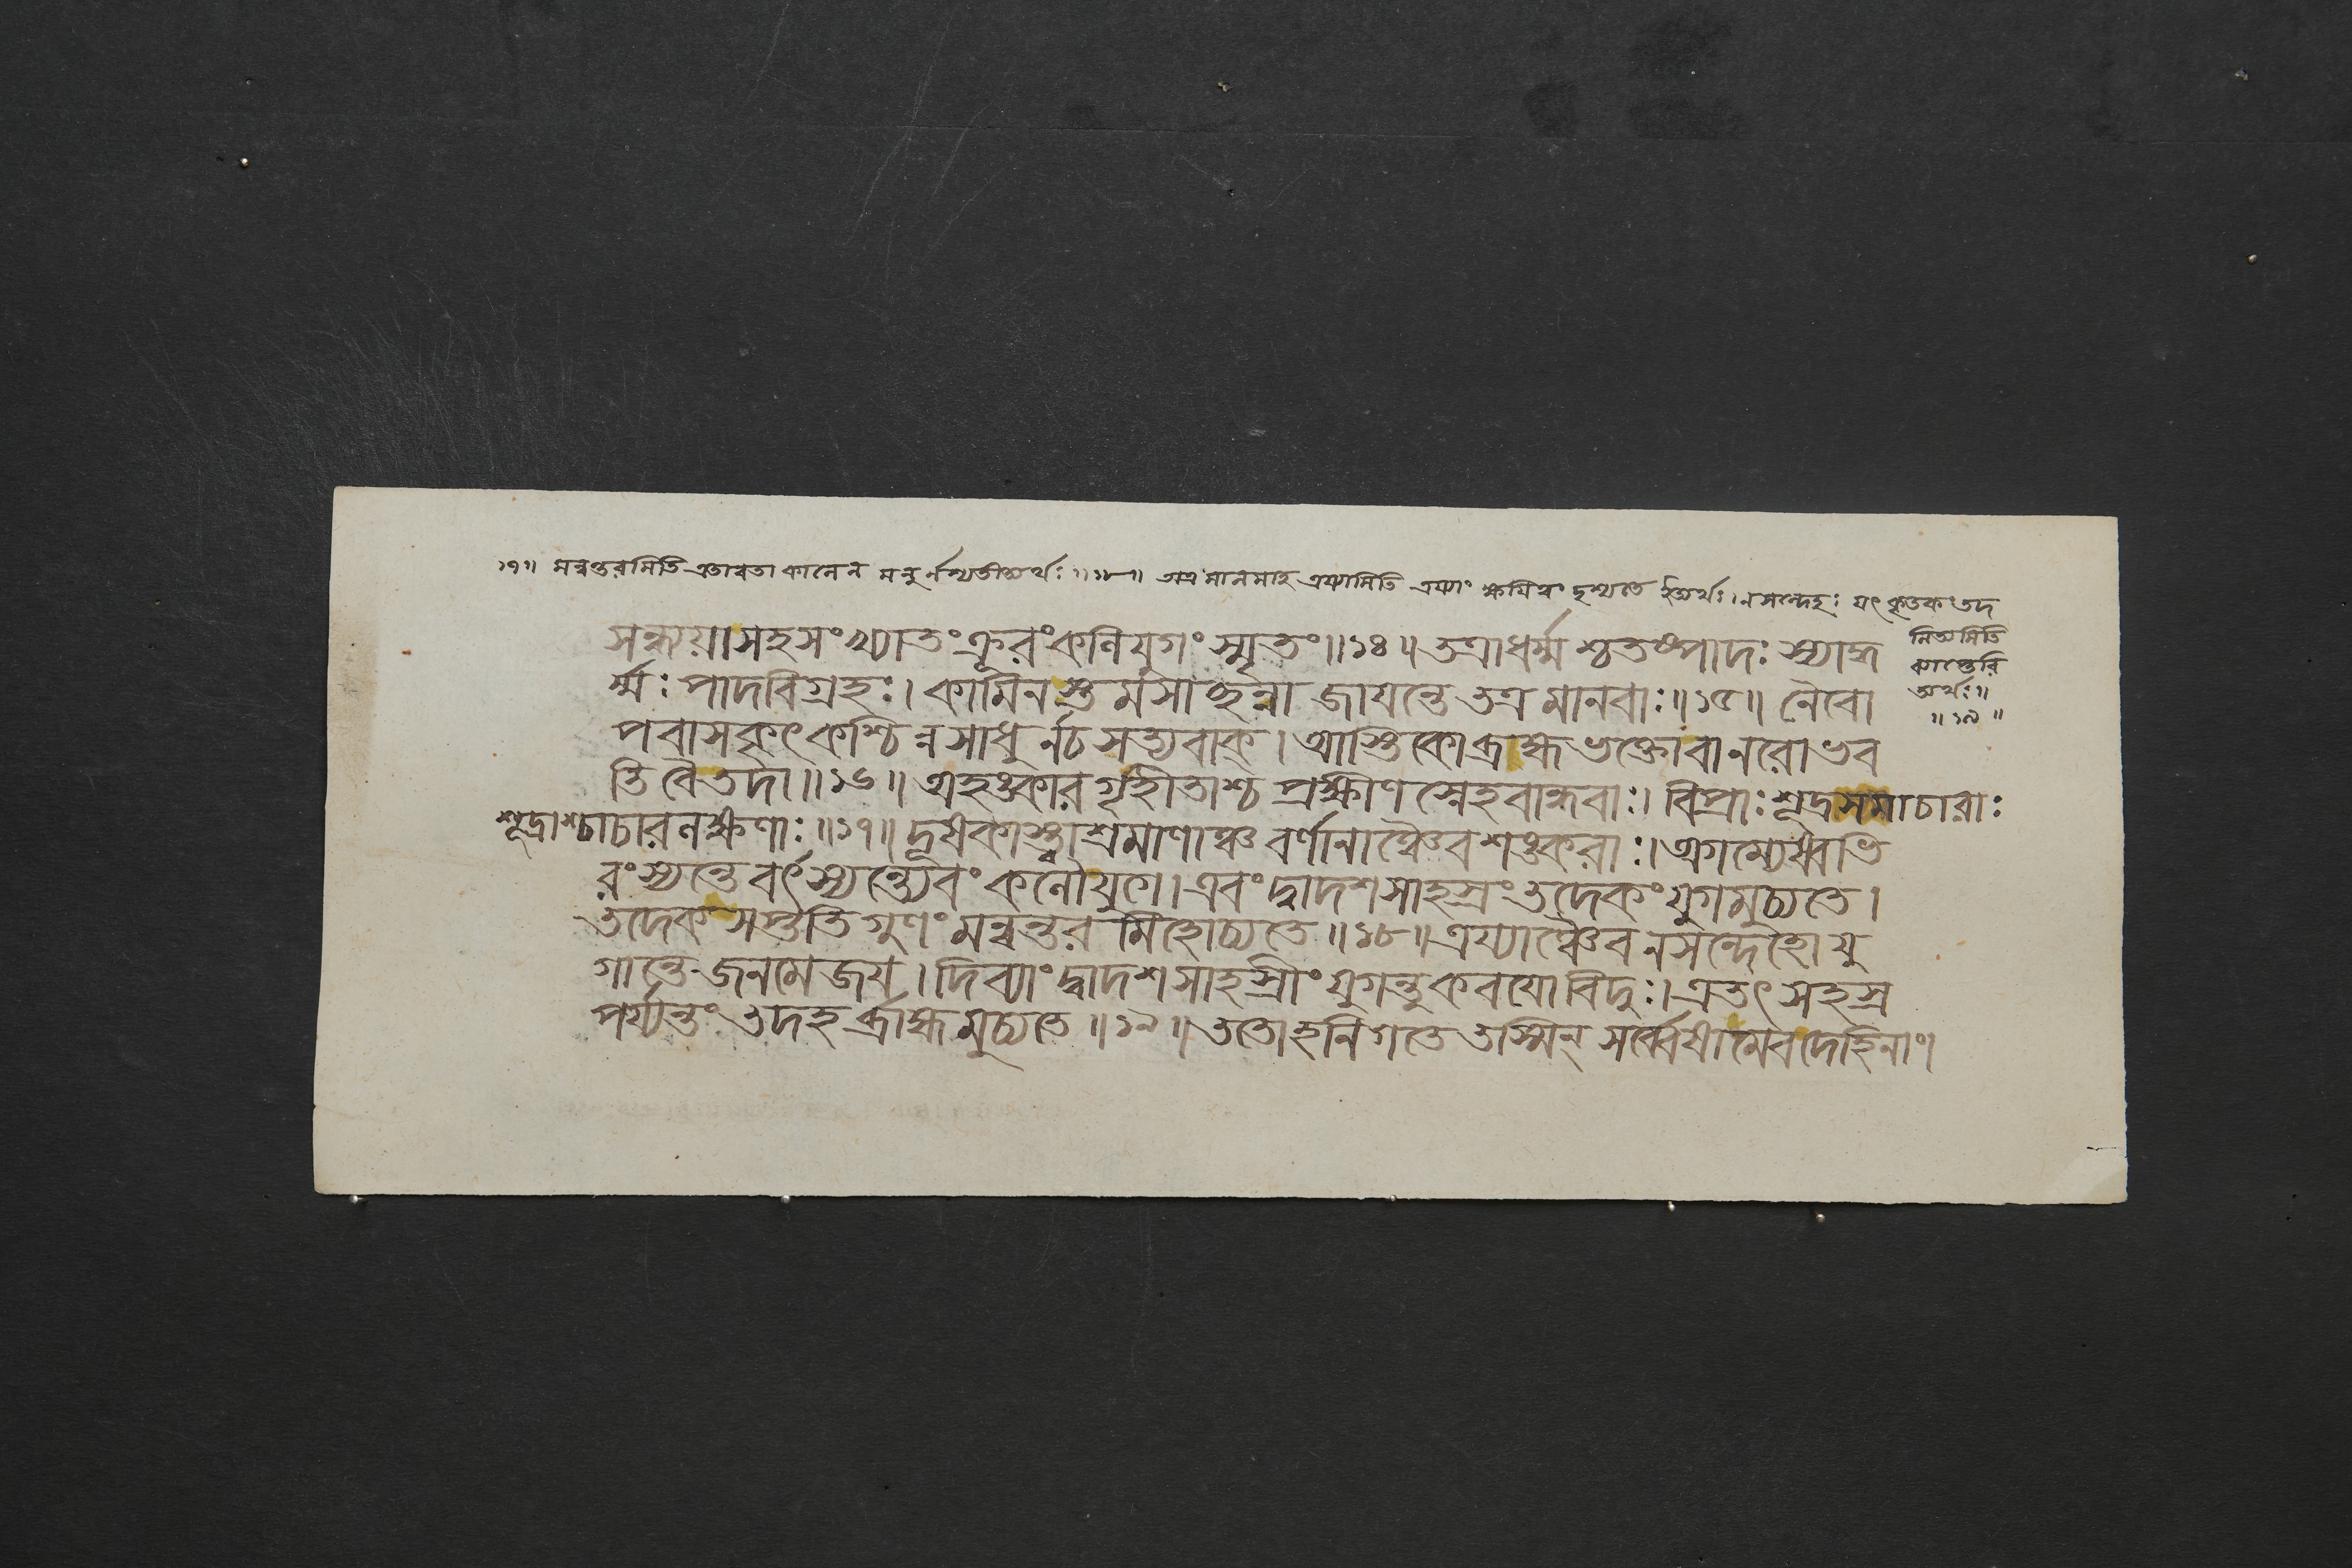 ১৭॥ মন্বন্তরমিতি এতাবতা কালেন মনুর্নশ্যতীত্যর্থঃ॥১৮॥ অত্র মানমাহ এষ্যামিতি এষ্যাং দৃশ্যতে ইত্যর্থঃ। নসন্দেহঃ যৎ তদ
সন্ধ্যয়াসহসংখ্যাতংক্রূরংকলিযুগংস্মৃতং॥১৪॥তত্রাধর্ম্মশ্চতুষ্পাদঃ স্যাদ্ধ
নিত্যমিতি
র্ম্মঃ পাদবিগ্রহঃ। কামিনস্তমসাচ্ছন্না জাযন্তে তত্র মানবাঃ॥১৫॥ নৈবো
ত্যর্থঃ॥
॥১৯॥
পবাসকৃৎকশ্চিন্নসাধুর্নচসত্যবাক্। আস্তিকোব্রাহ্মভক্তোবানরোভব
তিবৈতদা॥১৬॥ অহঙ্কারগৃহীতাশ্চ প্রক্ষীণস্নেহবান্ধবাঃ। বিপ্রাঃশূদ্রসমাচারাঃ
শূদ্রাশ্চাচারলক্ষণাঃ॥১৭॥দূষকাস্ত্বাশ্রমাণাঞ্চ বর্ণানাঞ্চৈবশঙ্করাঃ। অগম্যেষ্বভি
রংস্যন্তেবর্ৎস্যন্ত্যেবং কলৌযুগে। এবংদ্বাদশসাহস্রংতদেকংযুগমুচ্যতে।
তদেকসপ্ততিগুণংমন্বন্তরমিহোচ্যতে॥১৮॥এষ্যাঞ্চৈবনসন্দেহোযু
গান্তেজনমেজয়। দিব্যাংদ্বাদশসাহস্রীংযুগন্তুকবযোবিদুঃ। এতৎসহস্র
পর্য্যন্তংতদহর্ব্রাহ্মমুচ্যতে॥১৯॥ততোহনিগতেতস্মিন্ সর্ব্বেষামেবদেহিনাং।